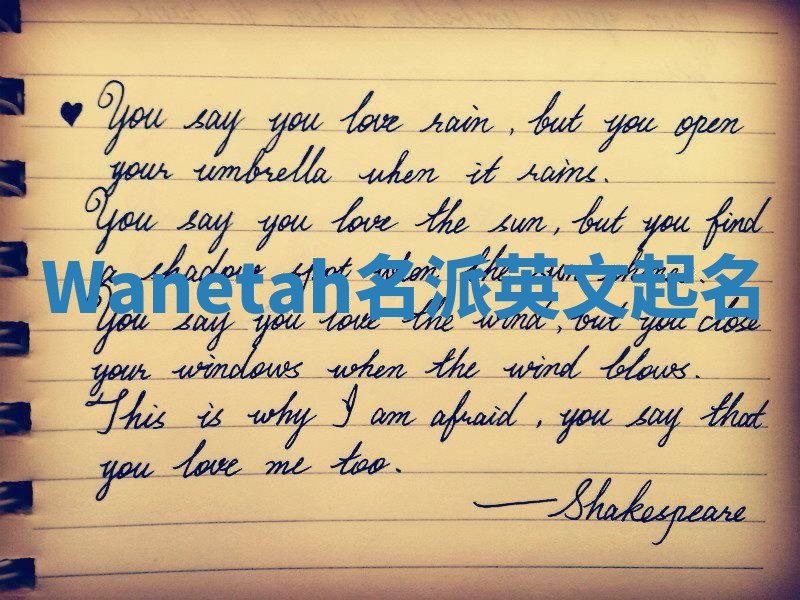 ♥ You say you love rain, but you open
your umbrella when it rains.
You say you love the sun, but you find
a shadow spot when the sun shines.
Wanetah名派英文起名
You say you love the wind, but you close
your windows when the wind blows.
This is why I am afraid, you say that
you love me too.
—Shakespeare